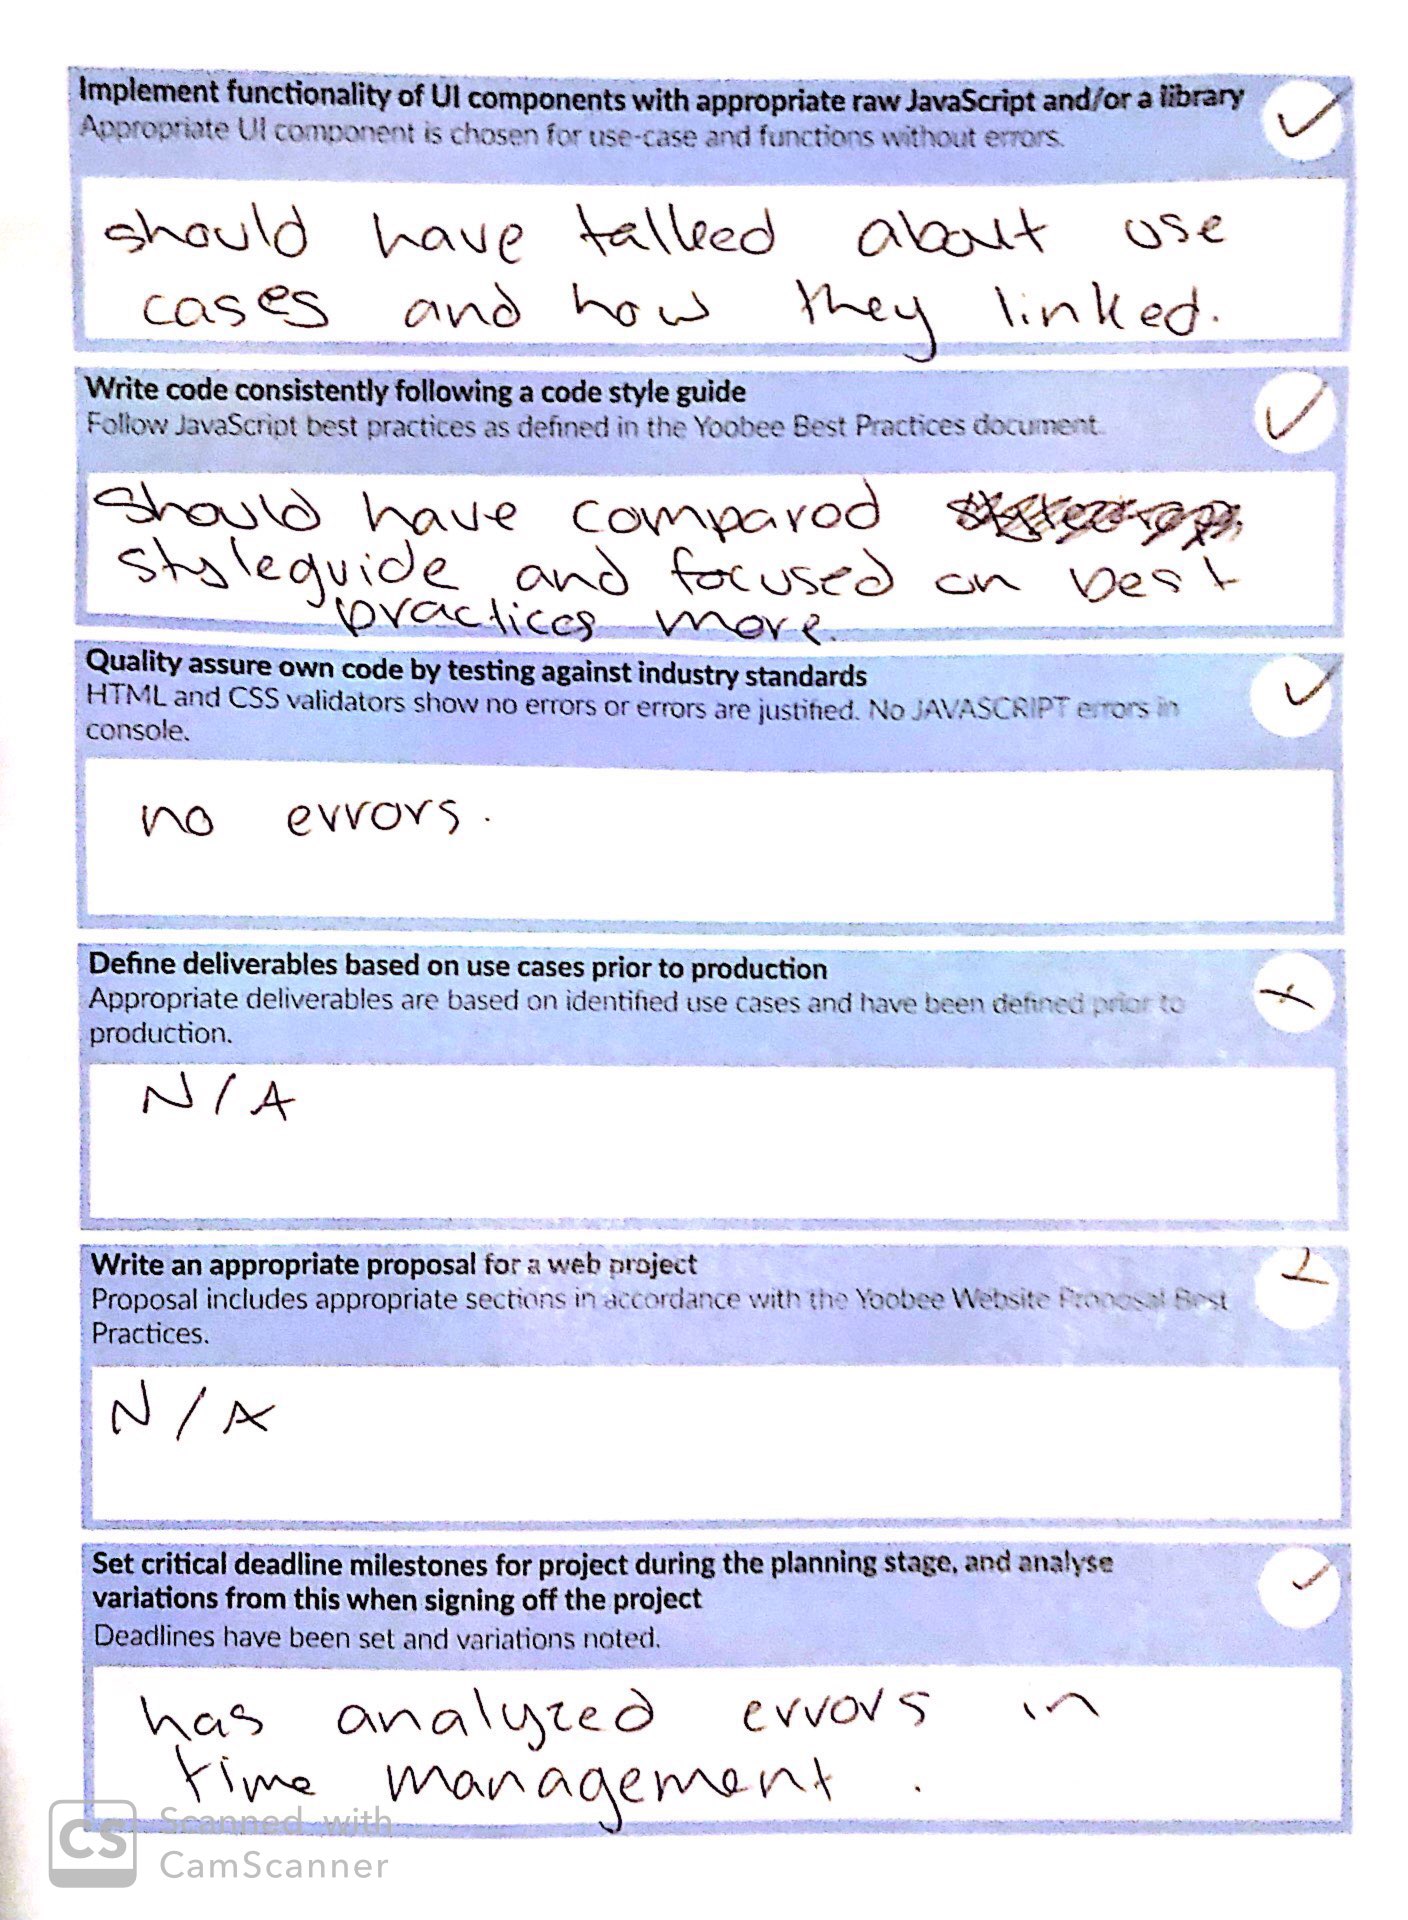 Implement functionality of UI components with appropriate raw JavaScript and/or a library
Appropriate UI component is chosen for use-case and functions without errors.
should have talked about use
cases and how they linked.
Write code consistently following a code style guide
Follow JavaScript best practices as defined in the Yoobee Best Practices document.
Should have compared
styleguide and focused on best
practices more.
Quality assure own code by testing against industry standards
HTML and CSS validators show no errors or errors are justified. No JAVASCRIPT errors in
console.
no errors.
Define deliverables based on use cases prior to production
Appropriate deliverables are based on identified use cases and have been defined prior to
production.
N/A
Write an appropriate proposal for a web project
Proposal includes appropriate sections in accordance with the Yoobee Website Proposal Best
Practices.
N/A
Set critical deadline milestones for project during the planning stage, and analyse
variations from this when signing off the project
Deadlines have been set and variations noted.
has analyzed errors in
time management.
CS
Scanned with
CamScanner